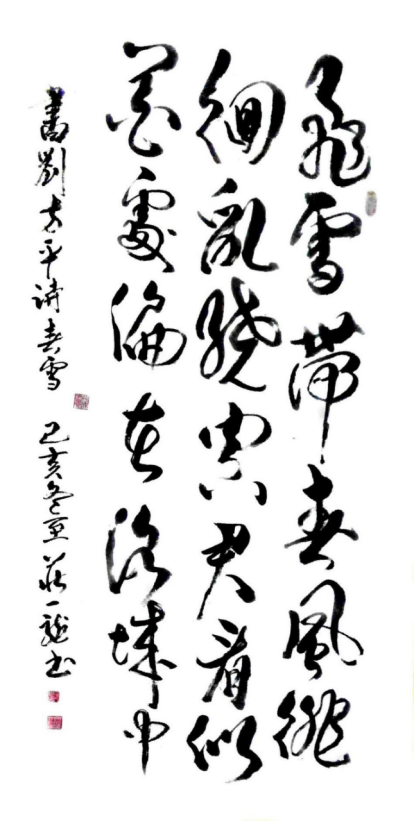 飛雪帶春風徘
徊亂繞空君看似
花處偏在洛城中
書劉方平詩春雪 己亥冬至 莊一龍书